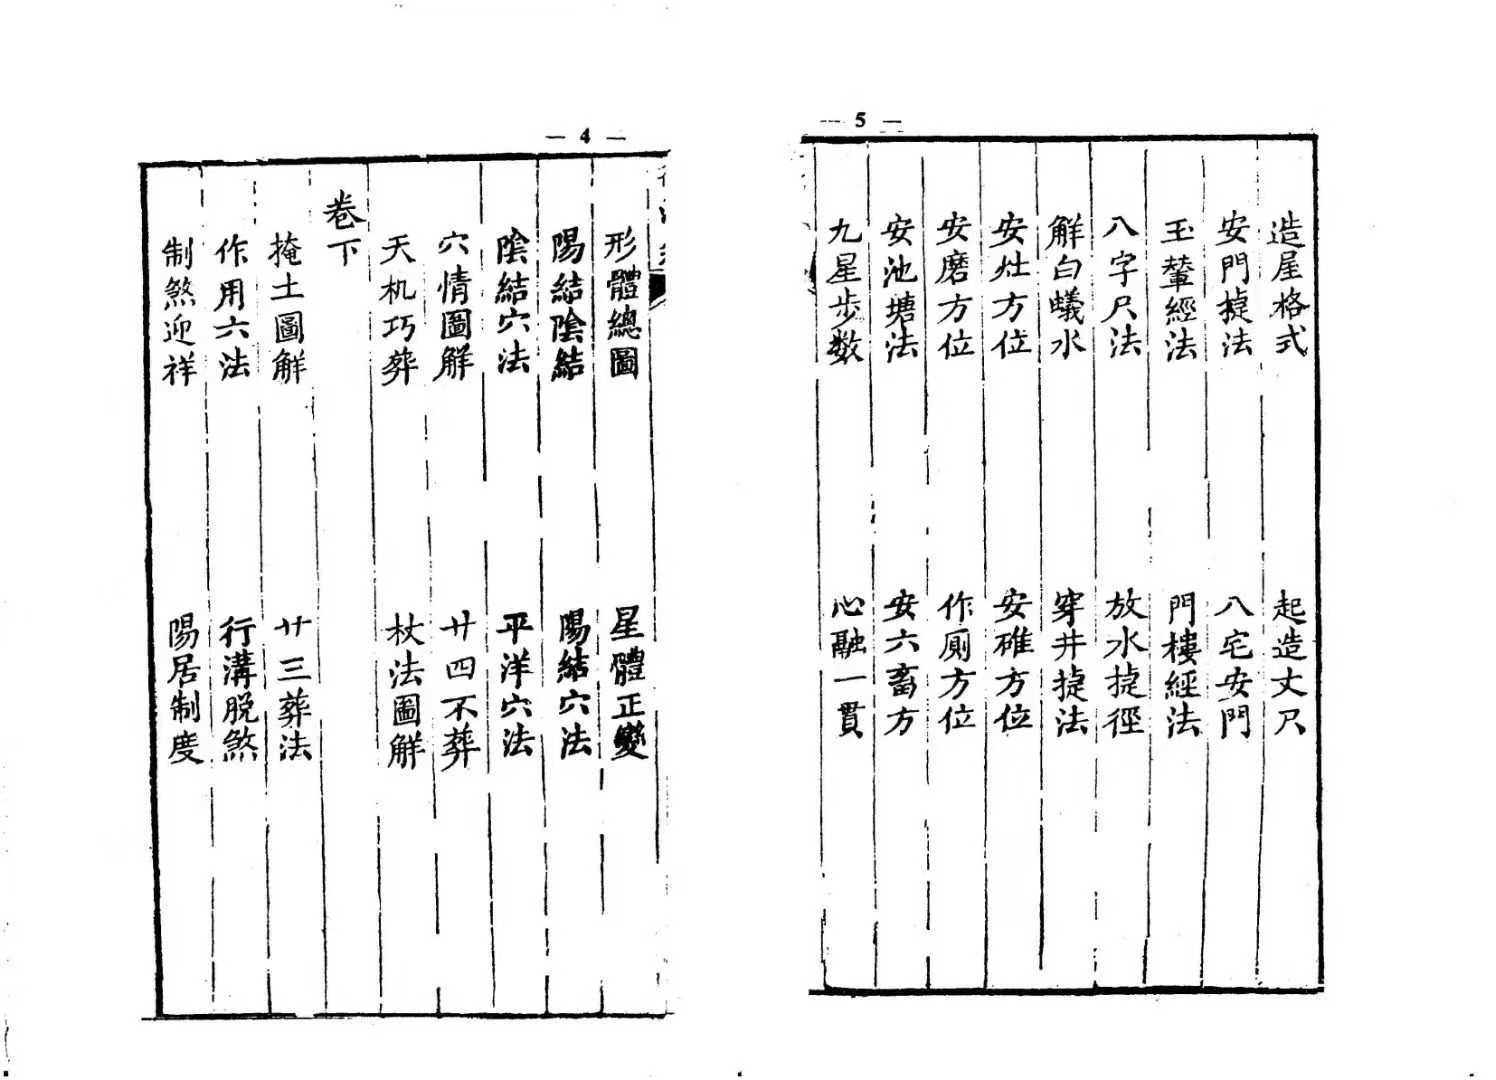 — 4 —
形體總圖 星體正變
陽結陰結 陽結穴法
陰結穴法 平洋穴法
穴情圖解 廿四不葬
天机巧葬 杖法圖解
卷下
掩土圖解 廿三葬法
作用六法 行溝脱煞
制煞迎祥 陽居制度
— 5 —
造屋格式 起造丈尺
安門㨗法 八宅安門
玉輦經法 門樓經法
八字尺法 放水㨗徑
解白蟻水 穿井㨗法
安灶方位 安碓方位
安磨方位 作厠方位
安池塘法 安六畜方
九星步数 心融一貫